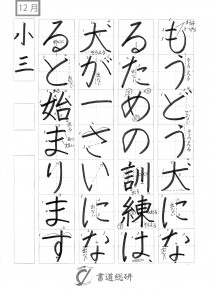 12月
もうどう犬にな
るための訓練は
犬が一さいにな
ると始まります
小三
書道総研